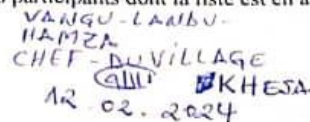 participants dont la liste est en a
VANGU-LANDU-
HAMZA
CHEF-DU VILLAGE
KHESA
12.02.2024